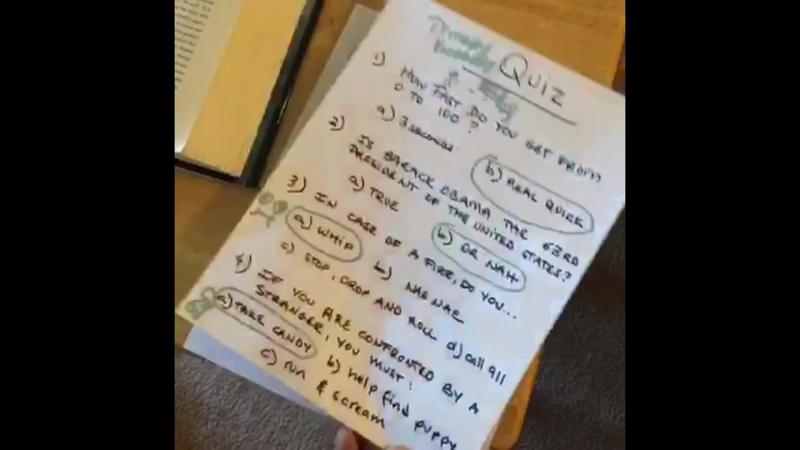 QUIZ
1) HOW FAST DO YOU GET FROM
0 TO 100?
a) 3 seconds
b) REAL QUICK
2) IS BARACK OBAMA THE 63RD
PRESIDENT OF THE UNITED STATES?
a) TRUE
b) OR NAH
3) IN CASE OF A FIRE, DO YOU...
a) WHIP
b) NAE NAE
c) STOP, DROP AND ROLL d) call 911
4) IF YOU ARE CONFRONTED BY A
STRANGER, YOU MUST:
a) TAKE CANDY
b) help find puppy
c) run & scream